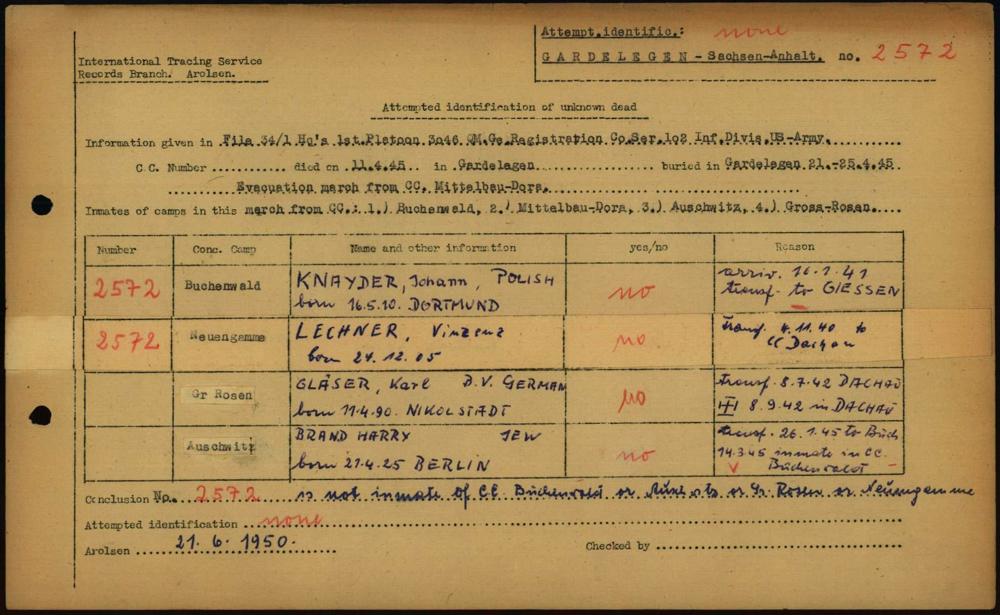 Attempt.identific.: none
International Tracing Service
Records Branch. Arolsen.
GARDELEGEN - Sachsen-Anhalt. no. 2572
Attempted identification of unknown dead
Information given in File 34/1 Hq's 1st.Platoon 3o46 QM.Ge.Registration Co.Ser.1o2 Inf.Divis.US-Army.
C.C. Number ............ died on 11.4.45 .. in Gardelegen ............ buried in Gardelegen 21.-25.4.45
Evacuation march from CC. Mittelbau-Dora.
Inmates of camps in this march from CC.: 1.) Buchenwald, 2.) Mittelbau-Dora, 3.) Auschwitz, 4.) Gross-Rosen.
Number Conc. Camp Name and other information yes/no Reason
2572 Buchenwald KNAYDER, Johann, POLISH no arriv. 16.1.41
born 16.5.10. DORTMUND transf. to GIESSEN
2572 Neuengamme LECHNER, Vinzenz no. transf. 4.11.40 to
born 24.12.05 CC Dachau
Gr Rosen GLÄSER, Karl D.V. GERMAN no transf. 8.7.42 DACHAU
born 11.4.90. NIKOLSTADT 8.9.42 in DACHAU
Auschwitz BRAND HARRY JEW no transf. 26.1.45 to Buch
born 21.4.25 BERLIN 14.3.45 inmate in CC.
Buchenwald
Conclusion No. 2572 is not inmate of CC. Buchenwald or or Gr. Rosen or Neuengamme
Attempted identification none
Arolsen 21. 6. 1950. Checked by